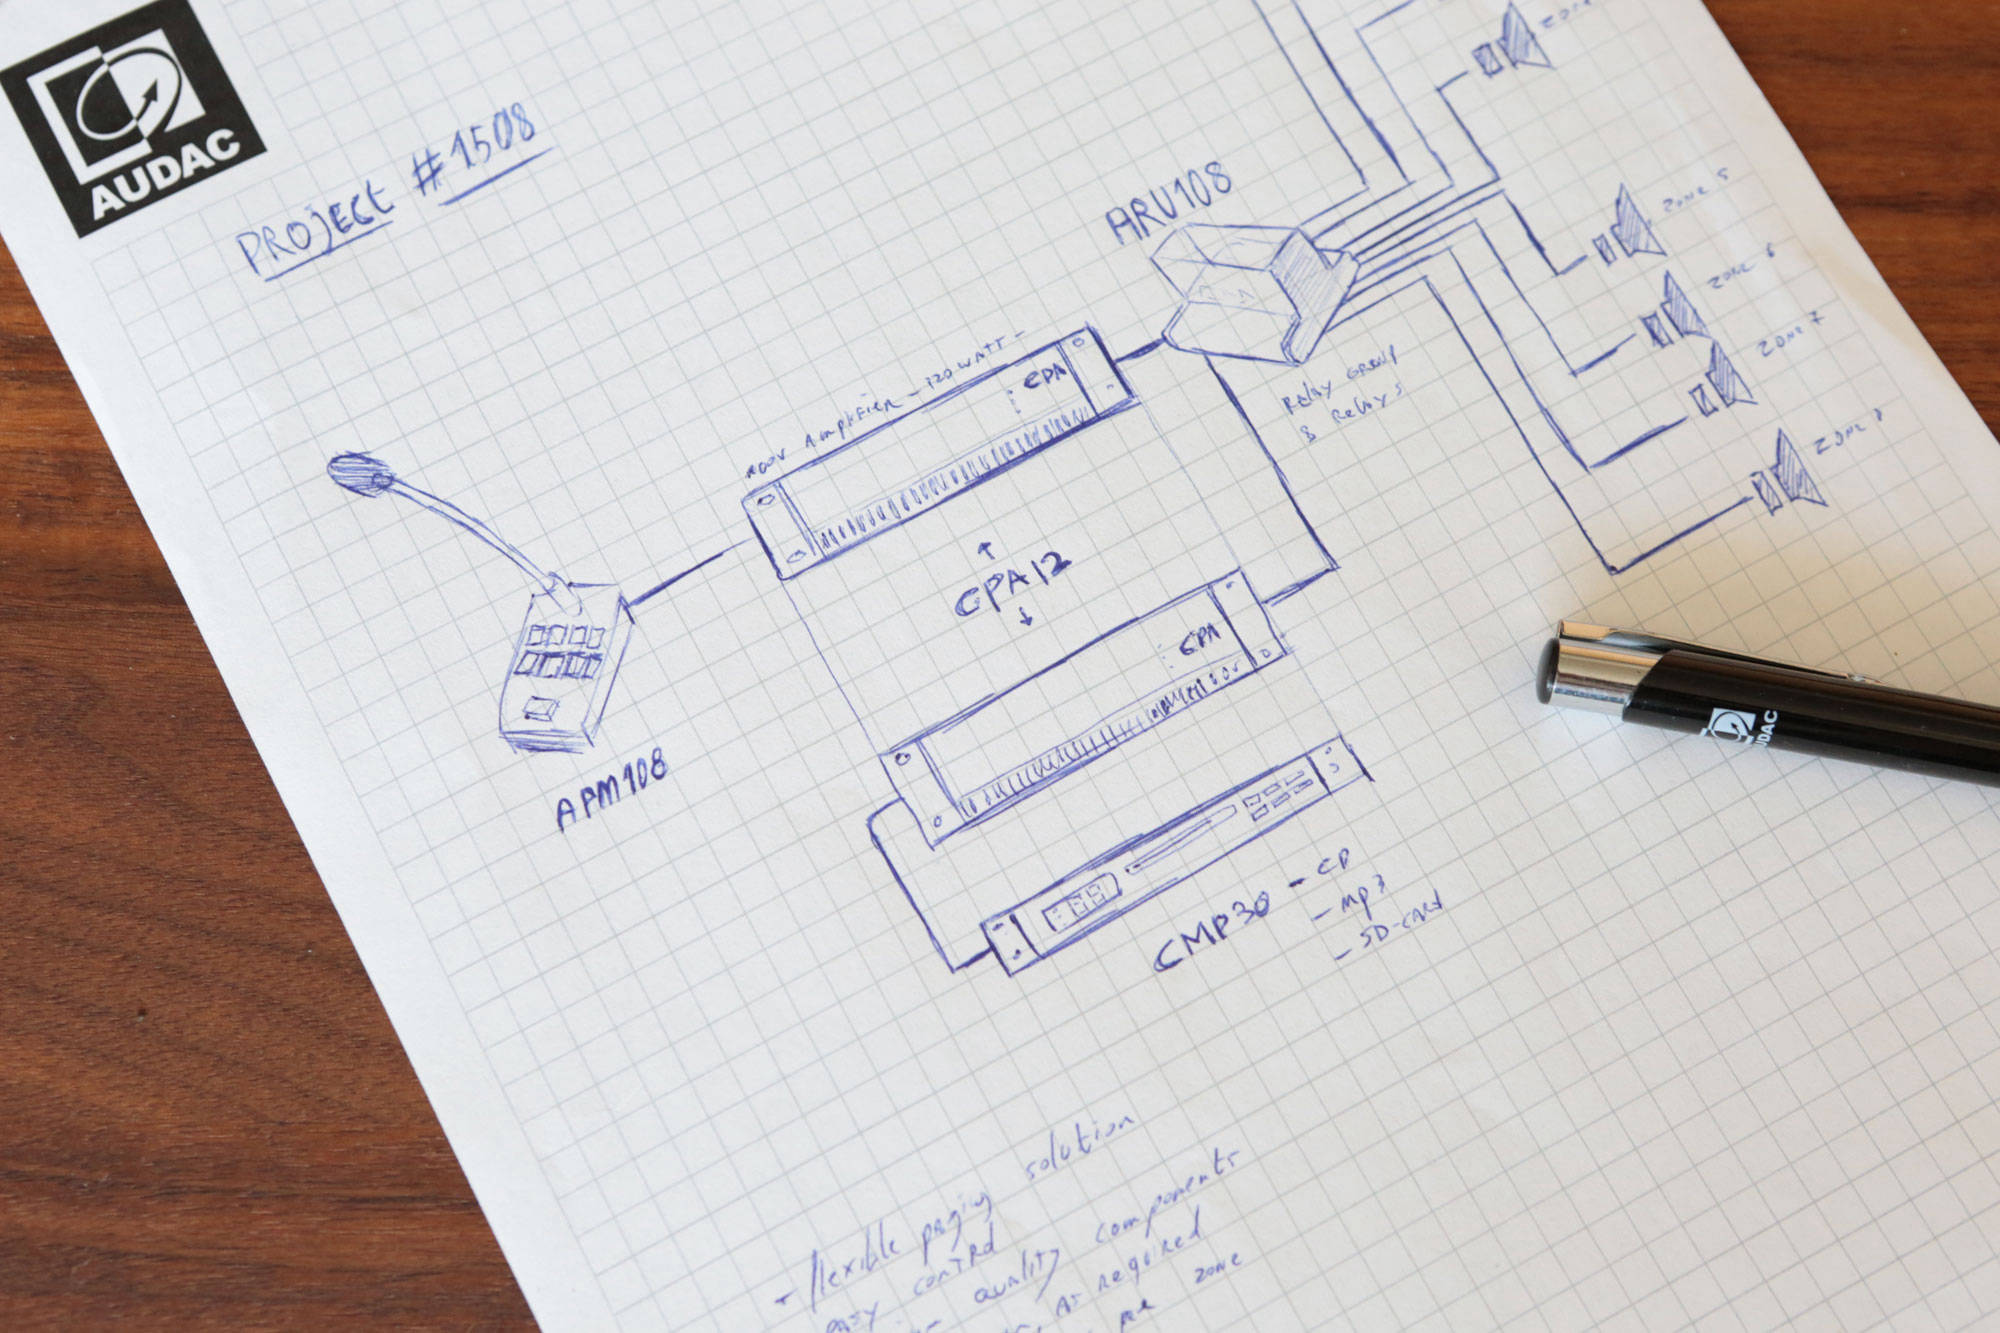 AUDAC
PROJECT #1508
ZONE
ARU108
ZONE 5
ZONE 6
ZONE 7
ZONE 8
100V AMPLIFIER - 120 WATT -
CPA
RELAY GROUP
8 Relays
CPA12
CPA
APM108
AUDAC
CMP30 - CD
- MP3
- SD-CARD
- flexible paging solution
easy control
quality components
as required
per zone